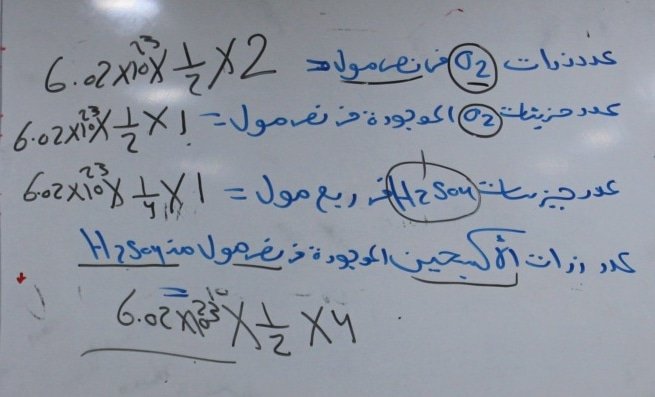 عدد ذرات O2 في نصف مول = 6.02×10²³ × 1/2 × 2
عدد جزيئات O2 الموجودة في نصف مول = 6.02×10²³ × 1/2 × 1
عدد جزيئات H2SO4 في ربع مول = 6.02×10²³ × 1/4 × 1
عدد ذرات الأكسجين الموجودة في نصف مول من H2SO4
= 6.02×10²³ × 1/2 × 4